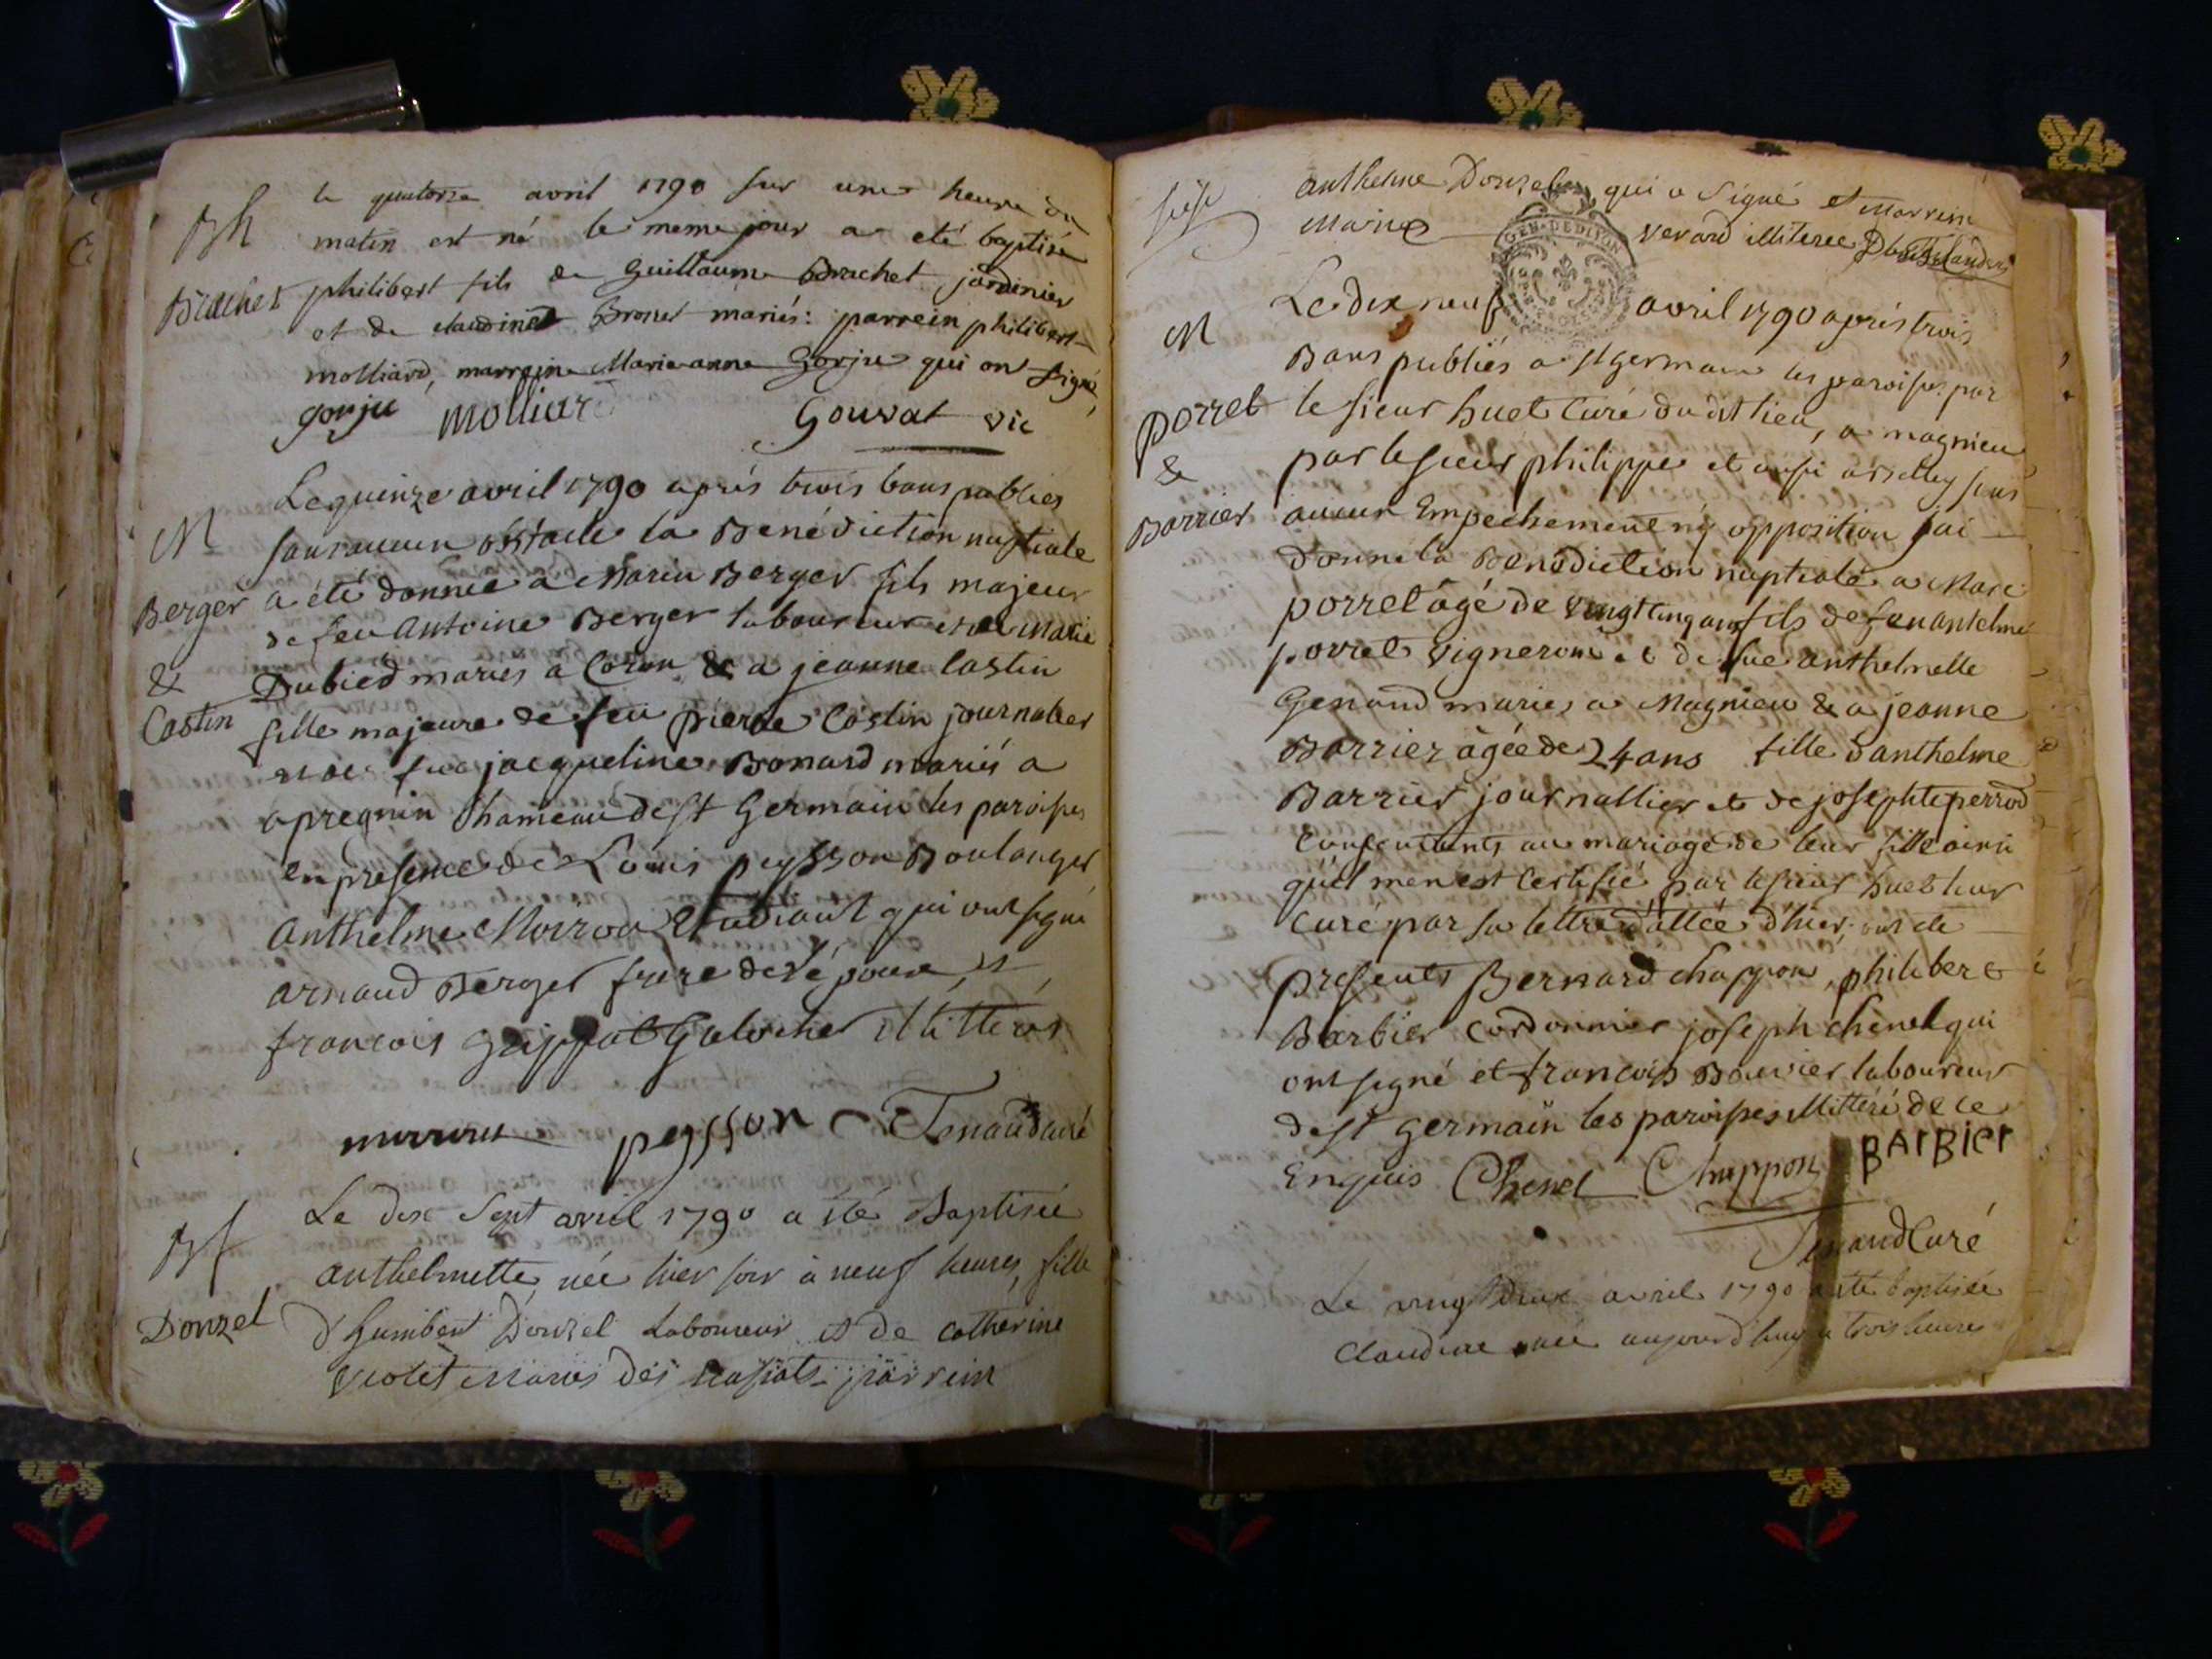 Bh
Brachet
le quatorze avril 1790 sur une heure du
matin est né le meme jour a eté baptisé
philibert fils de Guillaume Brachet jardinier
et de claudine Bronet mariés: parrein philibert
molliard, marreine Marie anne Gorju qui on signé
gorju molliard Gouvat vic
M
Berger
&
Costin
Le quinze avril 1790 après trois bans publies
sans aucun obstacle la Benédiction nuptiale
a été donnée a Marin Berger fils majeur
de feu Antoine Berger laboureur et de Marie
Dubied mariés a Coron & a jeanne Costin
fille majeure de feu pierre Costin journalier
et de feue jacqueline Bonard mariés a
apregnin hameau de St Germain les paroisses
en presence de Louis peysson Boulanger
Anthelme Moirou Etudiant qui ont signé
arnaud Berger frere de l'époux, et
francois Grippat Galoche illittérés
peysson Tenaud curé
Bf
Donzel
Le dix sept avril 1790 a été Baptisée
anthelmette, née hier soir à neuf heures, fille
d'humbert Donzel Laboureur et de Catherine
Violet Mariés des parrein
anthelme Donzel qui a signé et marreine
Marie verard illiteree
GEN·DE DIJON
M
porret
&
Barrier
Le dix neuf avril 1790 après trois
Bans publiés a St germain les paroisses par
le sieur huet Curé du dit lieu, a magnieu
par le sieur philippe et aussi a sans
aucun Empechement ny opposition jai
donné la Benediction nuptiale a Marc
porret âgé de vingt cinq ans fils de feu antelme
porret vigneron et de feue anthelmette
Genand mariés a Magnieu & a jeanne
Barrier âgée de 24 ans fille d'anthelme
Barrier journallier et de josephte perrod
Consentants au mariage de leur fille ainsi
qu'il m'en est certifié par le sieur huet leur
curé par sa lettre d'attée d'hier; ont été
presents Bernard chappon, philibert
Barbier Cordonnier joseph chenel qui
ont signé et francois Bouvier laboureur
de St germain les paroisses illittéré de ce
Enquis Chenel Chappon BArBier
Tenaud Curé
Le vingt deux avril 1790 a été baptisée
Claudine née aujourd'huy a trois heures